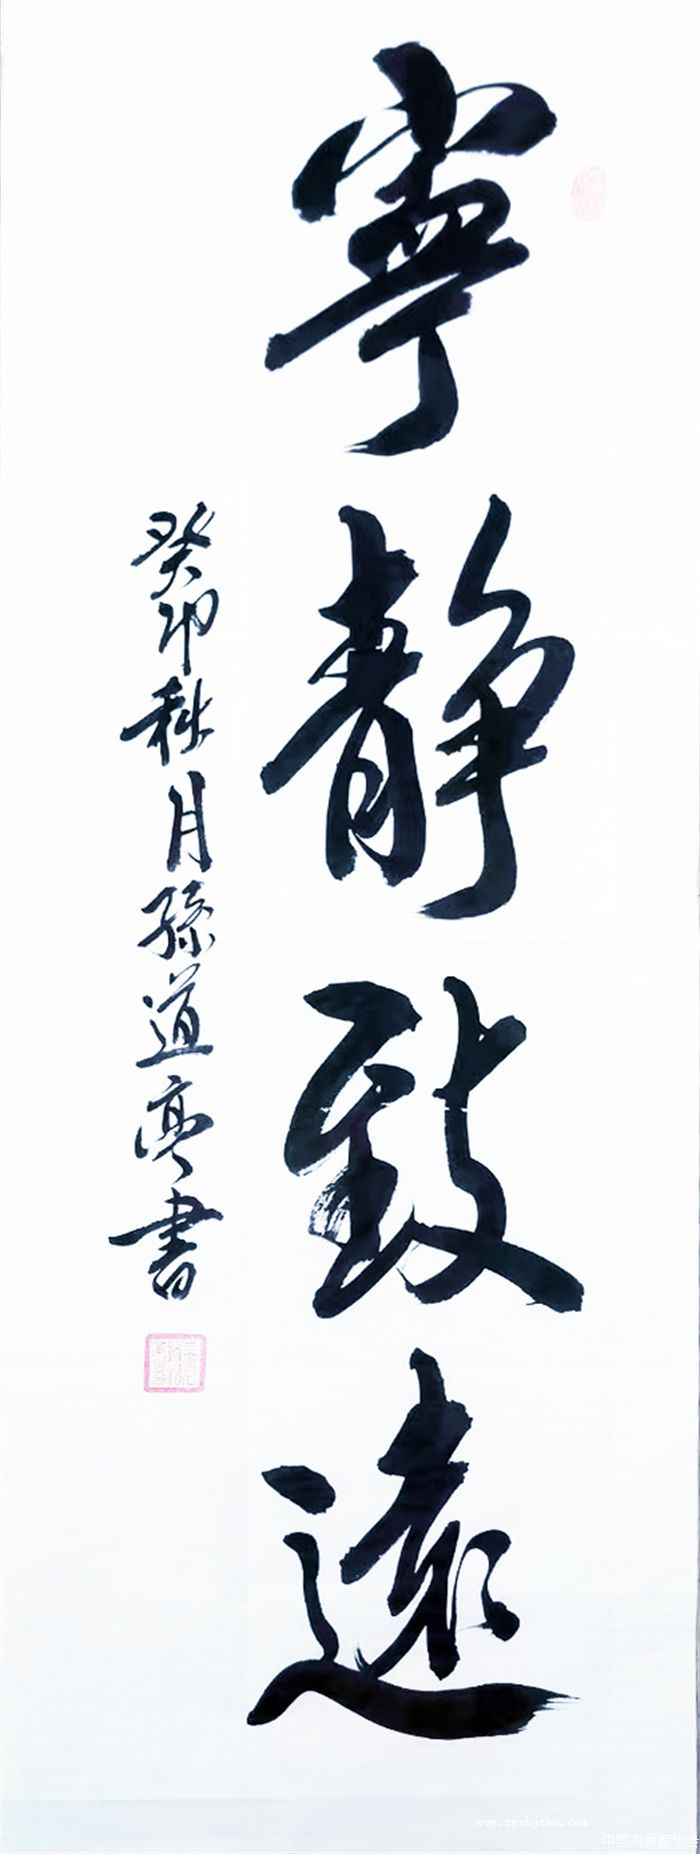 寧靜致遠
癸卯秋月孫道亭書
www.zgshjxhw.com
中国书画家协会